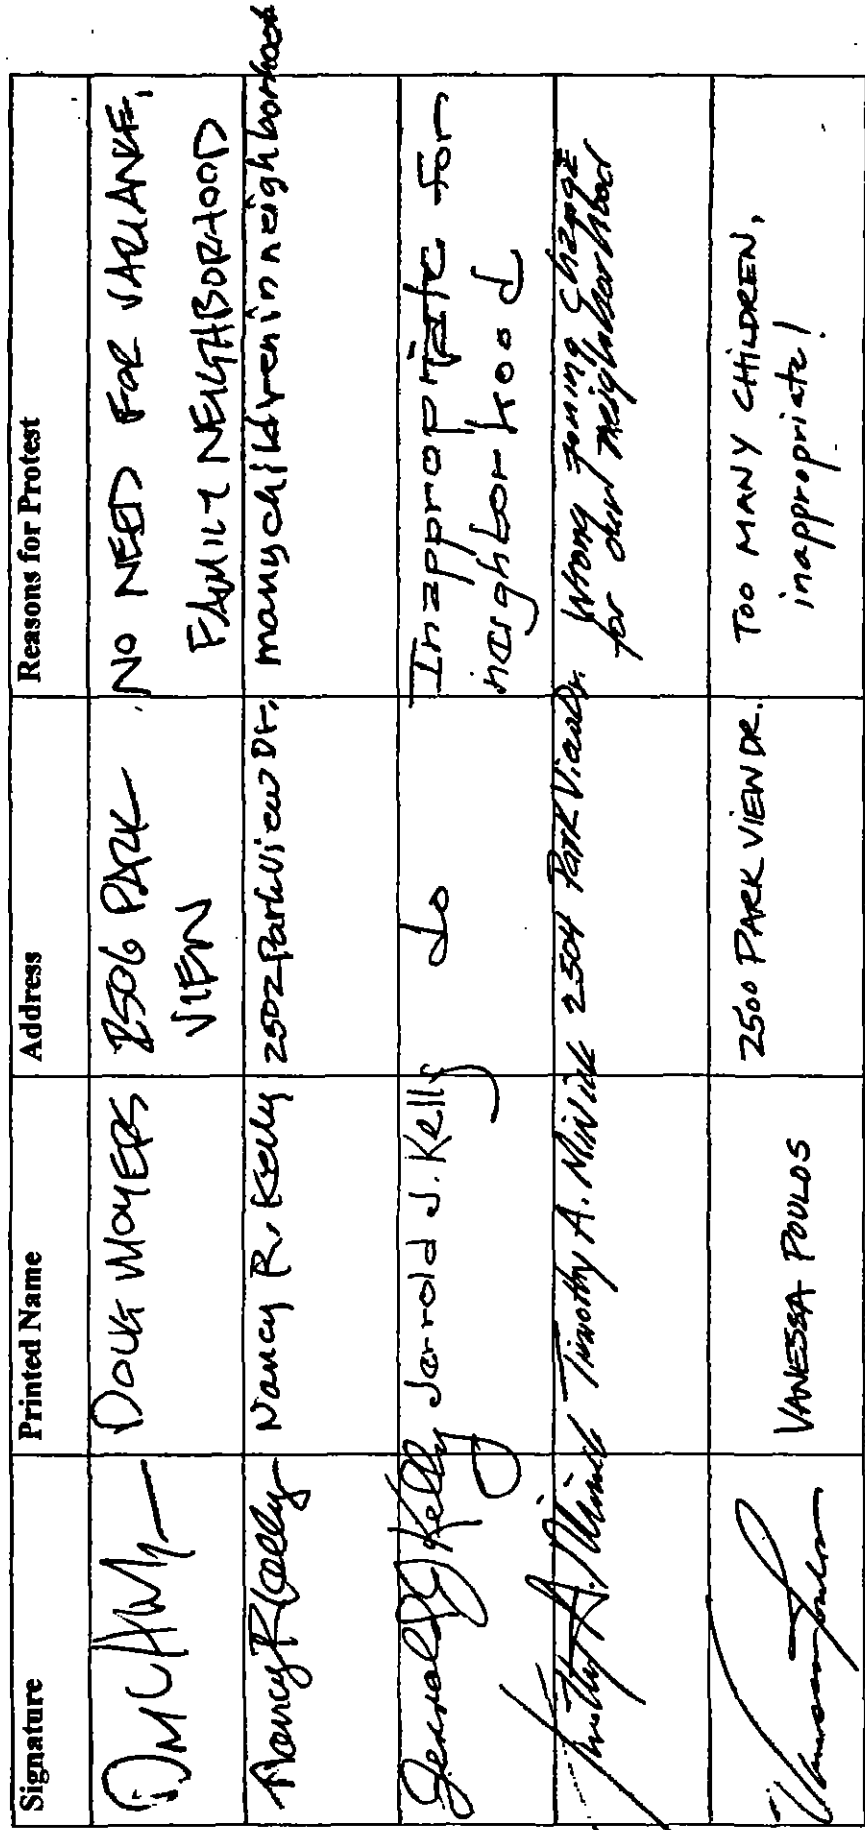 Signature Printed Name Address Reasons for Protest
DOUG MOYERS 2506 PARK VIEW NO NEED FOR VARIANCE,
FAMILY NEIGHBORHOOD
Nancy R Kelly Nancy R. Kelly 2502 Park View Dr. many children in neighborhood
Jerrold J Kelly Jerrold J. Kelly do Inappropriate for
neighborhood
Timothy A. 2504 Park View Dr. Wrong zoning change
for our neighborhood
VANESSA POULOS 2500 PARK VIEW DR. TOO MANY CHILDREN,
inappropriate!